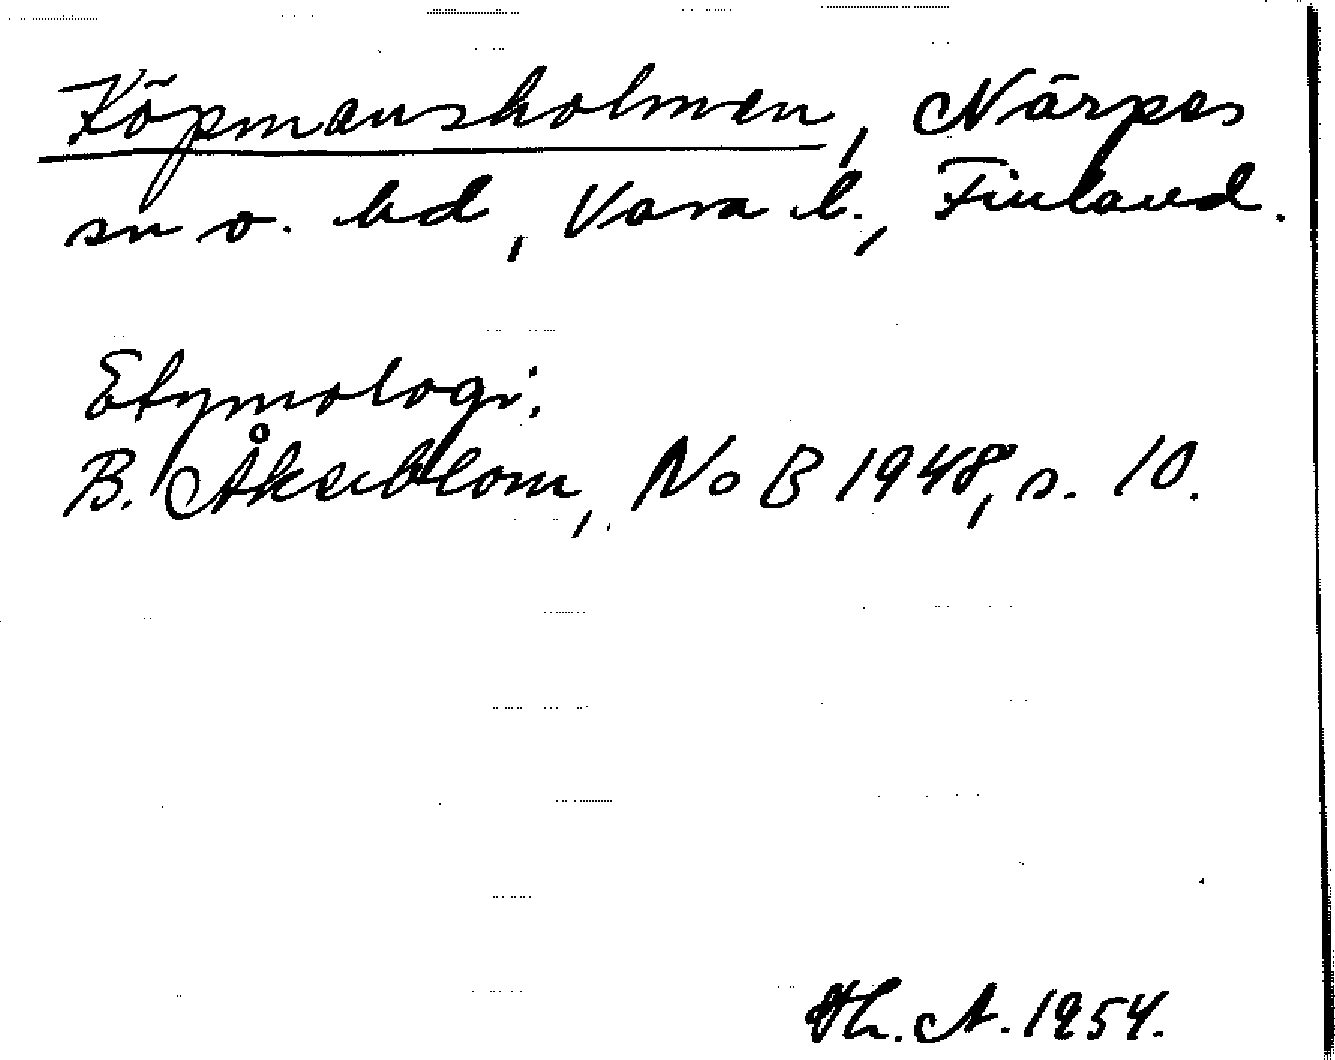 Köpmansholmen, Närpes
sn o. hd, Vasa l., Finland.
Etymologi:
B. Åkerblom, No B 1948, s. 10.
Th. A. 1954.